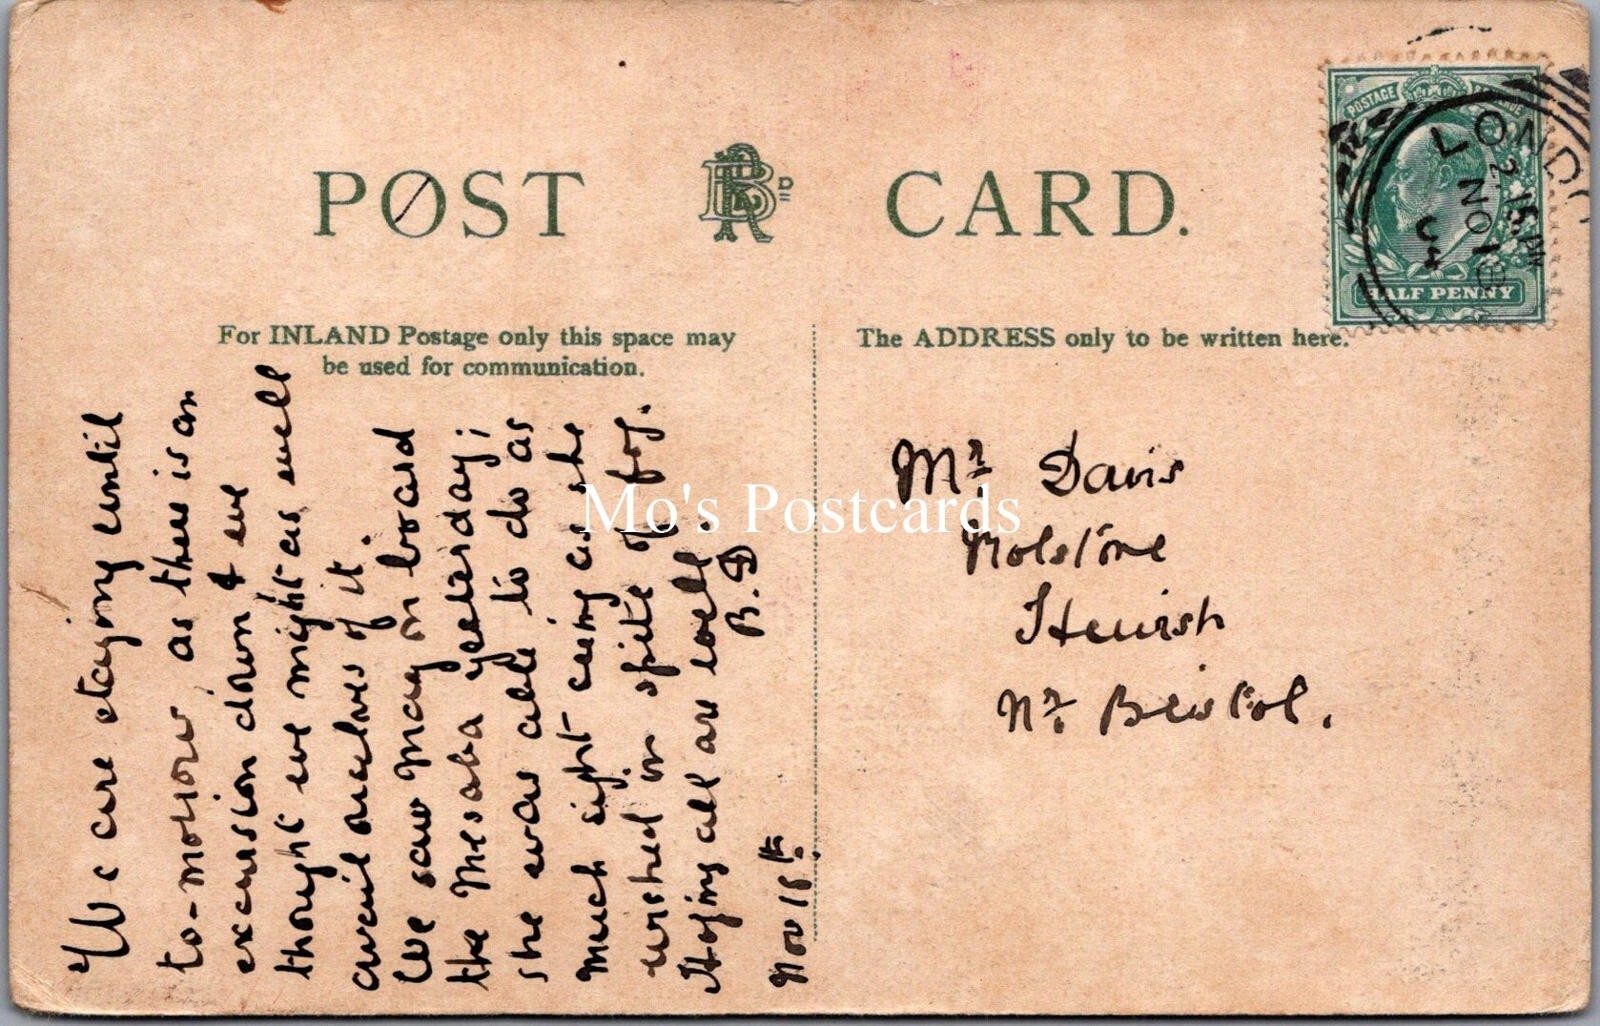 POST CARD.
For INLAND Postage only this space may
be used for communication.
The ADDRESS only to be written here.
POSTAGE
HALF PENNY
LONDO
2.15 PM
NO 18
We are staying until
to-morrow, as there is an
excursion down & we
thought we might as well
avail ourselves of it.
We saw May on board
the Mesaba yesterday;
she was able to do as
much sight seeing as she
wished in spite of fog.
Hoping all are well.
B.D
Nov 18th.
Mr Davis
Holstone
Hewish
Nr Bristol.
Mo's Postcards